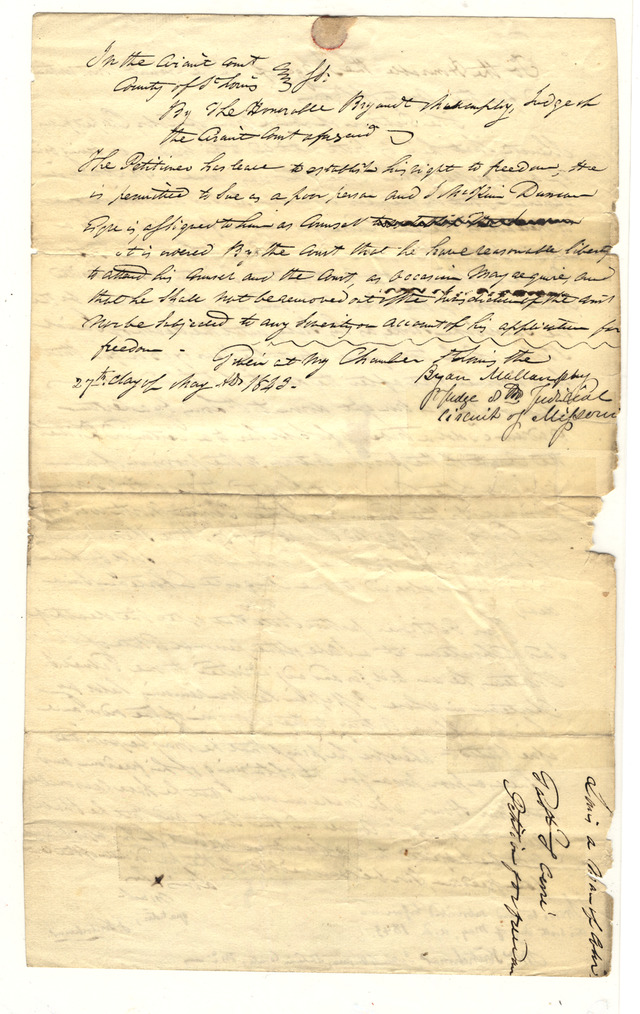 In the Circuit Court
County of St Louis } SS:
By The Honorable Bryan Mullanphy, Judge of
the Circuit Court aforesaid
The Petitioner has leave to establish his right to freedom, He
is permitted to Sue as a poor person and Duncan
Esqr is assigned to him as Counsel
it is ordered By the Court that he have reasonable liberty
to attend his Counsel and the Court, as occasion May require, and
that he Shall not be removed out of the Jurisdiction of the Court
Nor be Subjected to any Severity on account of his application for
freedom - Given at My Chamber the
27th day of May AD 1843.
Bryan Mullanphy
Judge 8th Judicial
Circuit of Missouri
Louis a Man of Color
Gabl S Cerré
Petition for freedom